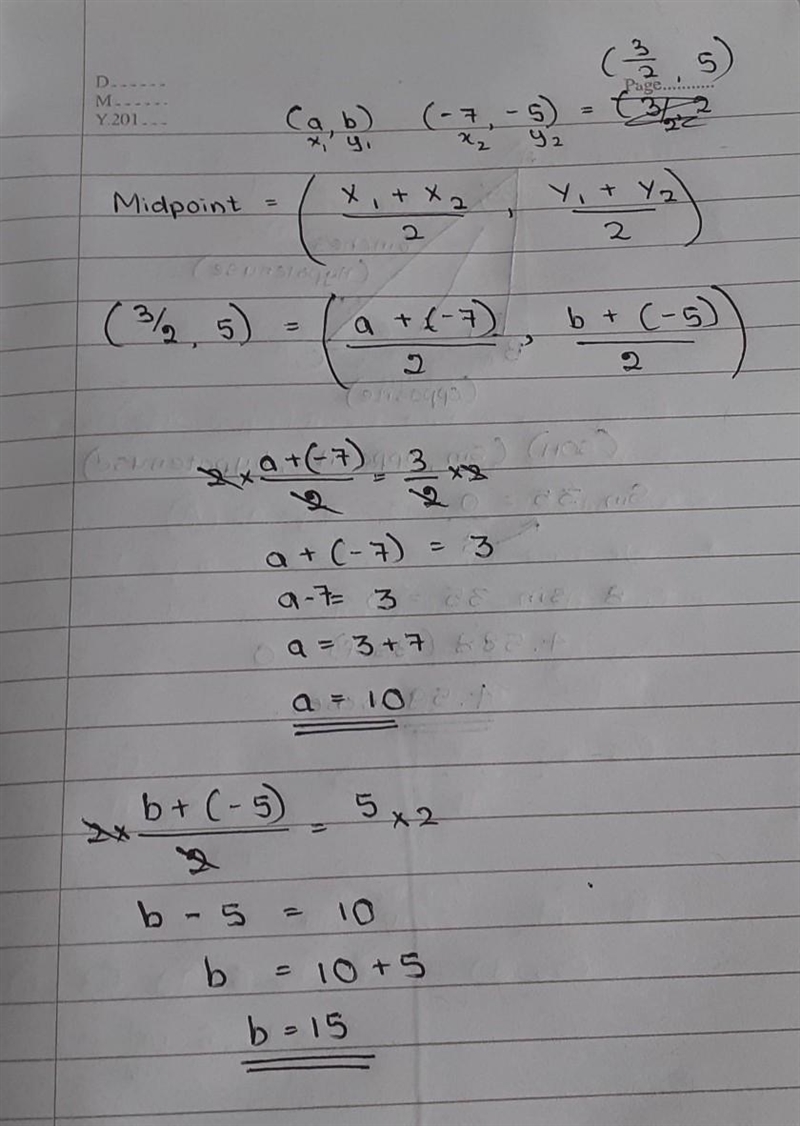 (3/2, 5)
D......
M......
Y.201...
Page...........
(a, b) (-7, -5) =
x₁ y₁ x₂ y₂
Midpoint = (x₁ + x₂ / 2, y₁ + y₂ / 2)
(3/2, 5) = (a + (-7) / 2, b + (-5) / 2)
2 × a + (-7) / 2 = 3/2 × 2
a + (-7) = 3
a - 7 = 3
a = 3 + 7
a = 10
2 × b + (-5) / 2 = 5 × 2
b - 5 = 10
b = 10 + 5
b = 15